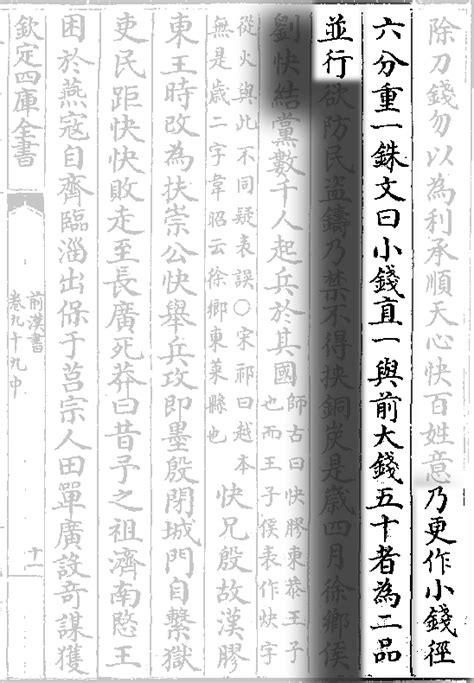 除刀錢勿以為利承順天心快百姓意乃更作小錢徑
六分重一銖文曰小錢直一與前大錢五十者為二品
並行欲防民盜鑄乃禁不得挾銅炭是歲四月徐鄉侯
劉快結黨數千人起兵於其國
師古曰快膠東恭王子
也而王子侯表作炔字
從火與此不同疑表誤○宋祁曰越本
無是歲二字韋昭云徐鄉東萊縣也
快兄殷故漢膠
東王時改為扶崇公快舉兵攻即墨殷閉城門自繫獄
吏民距快快敗走至長廣死莽曰昔予之祖濟南愍王
困於燕寇自齊臨淄出保于莒宗人田單廣設奇謀獲
欽定四庫全書
前漢書
卷九十九中
十一